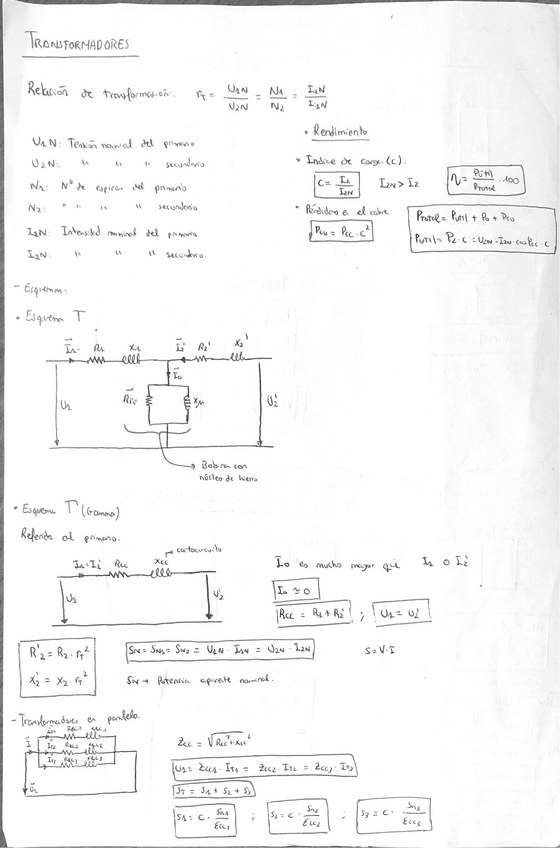 TRANSFORMADORES
Relación de transformación. rT = U1N/U2N = N1/N2 = I2N/I1N
U1N: Tensión nominal del primario
U2N: " " " secundario
N1: Nº de espiras del primario
N2: " " " secundario
I1N: Intensidad nominal del primario
I2N: " " " secundario.
• Rendimiento
• Indice de carga (c).
C = I2/I2N I2N > I2
η = Pútil/Ptotal · 100
• Pérdidas en el cobre
Pcu = Pcc · c²
Ptotal = Putil + P0 + Pcu
- Esquemas:
• Esquema T
I1 R1 X1 I2' R2' X2'
I0
U1 RFe Xμ U2'
→ Bobina con
núcleo de hierro
• Esquema Γ (Gamma)
Referido al primario.
I1=I2' Rcc Xcc → cortocircuito
I0 es mucho mayor que I1 o I2'
I0 ≃ 0
Rcc = R1 + R2' ; U1 = U2'
R'2 = R2 · rT²
X2' = X2 · rT²
SN = SN1 = SN2 = U1N · I1N = U2N · I2N
S = V · I
SN → Potencia aparente nominal.
- Transformadores en paralelo.
Zcc = √Rcc² + Xcc²
U1 = Zcc1 · IT1 = Zcc2 · IT2 = Zcc3 · IT3
ST = S1 + S2 + S3
S1 = C · SN1/Ecc1 ; S2 = C · SN2/Ecc2 ; S3 = C · SN3/Ecc3